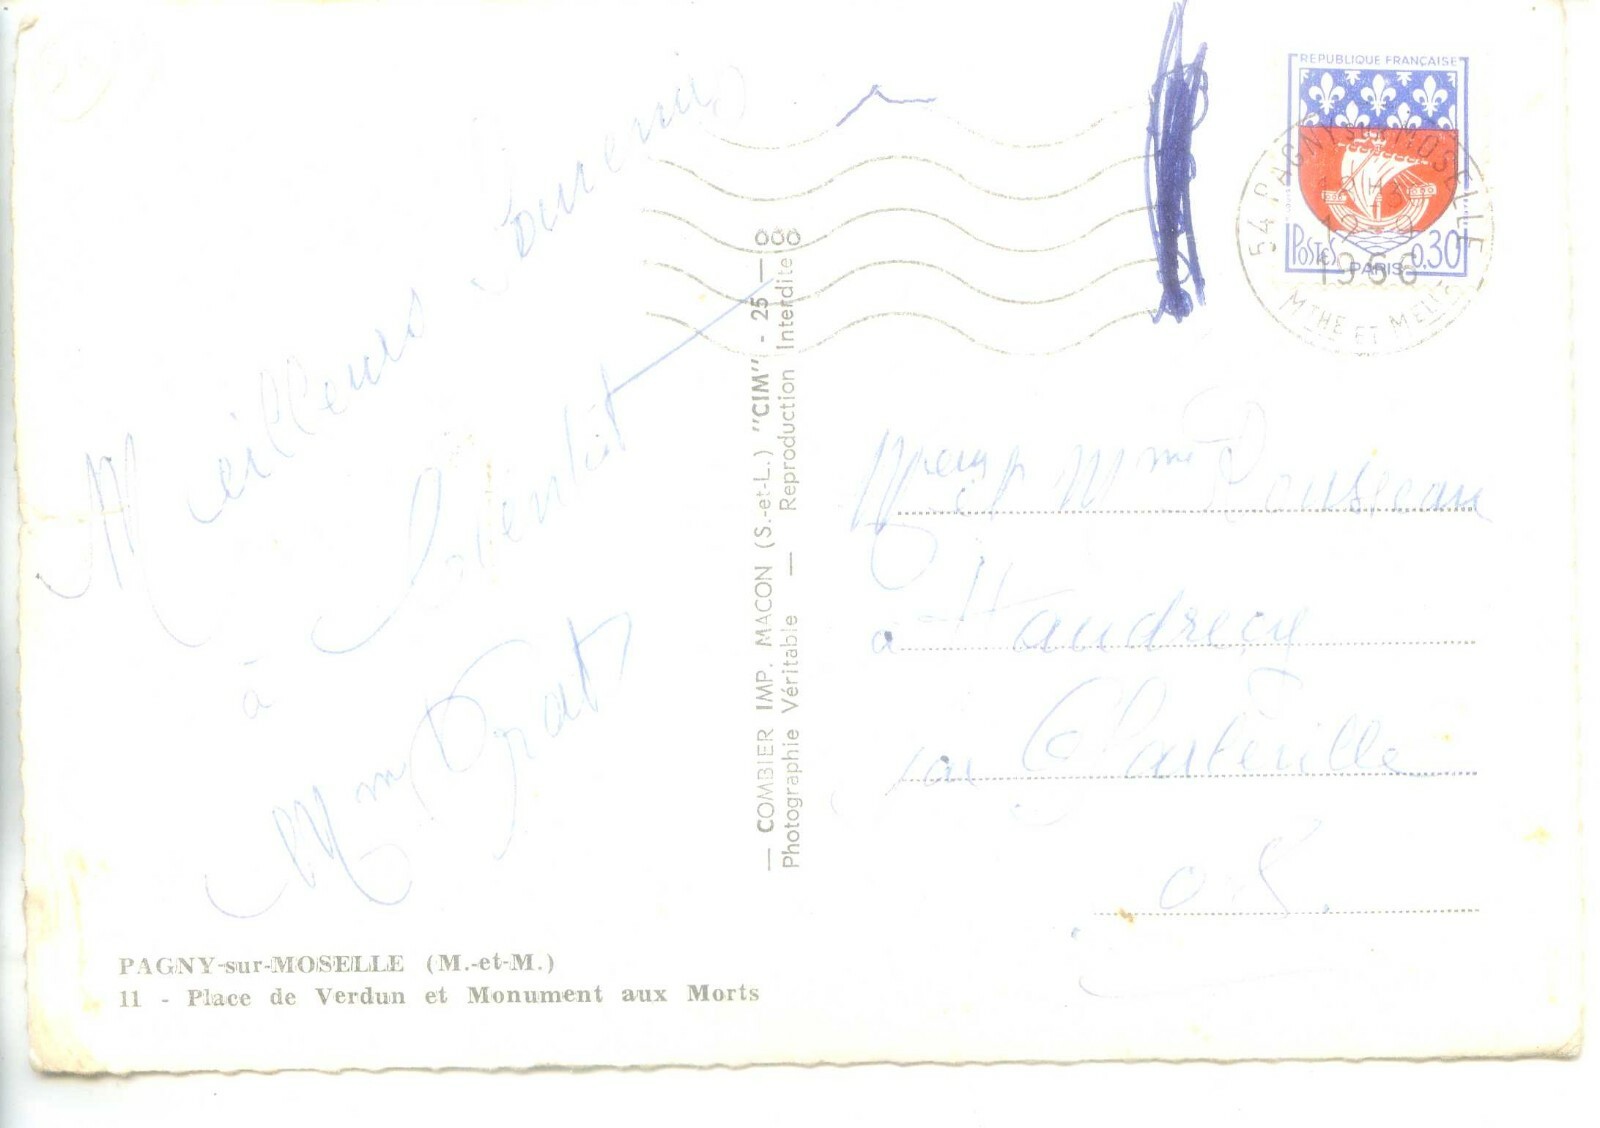 Meilleurs souvenirs
à
Mme
PAGNY-sur-MOSELLE (M.-et-M.)
11 - Place de Verdun et Monument aux Morts
— COMBIER IMP. MACON (S.-et-L.) "CIM" - 25 — 000
Photographie Véritable — Reproduction Interdite
REPUBLIQUE FRANÇAISE
POSTES 0,30
PARIS
54 PAGNY SUR MOSELLE
1966
MTHE ET MELLE
et Mme Rousseau
à Haudrecy
par Charleville